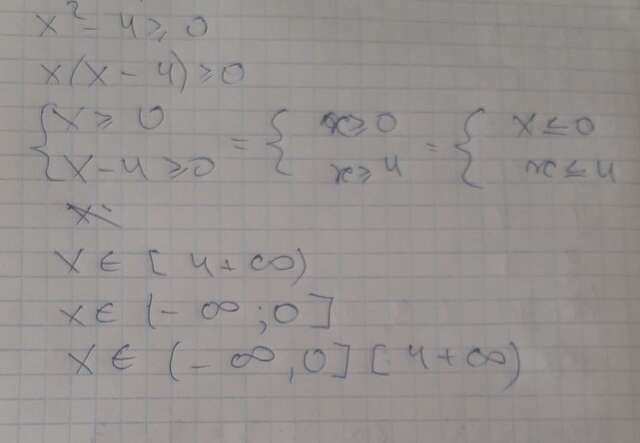 x² - 4 ≥ 0
x(x - 4) ≥ 0
{ x ≥ 0 = { x ≥ 0 = { x ≤ 0
x - 4 ≥ 0 x ≥ 4 x ≤ 4
x ∈ [ 4 + ∞)
x ∈ (- ∞ ; 0 ]
x ∈ (- ∞ , 0 ] [ 4 + ∞)